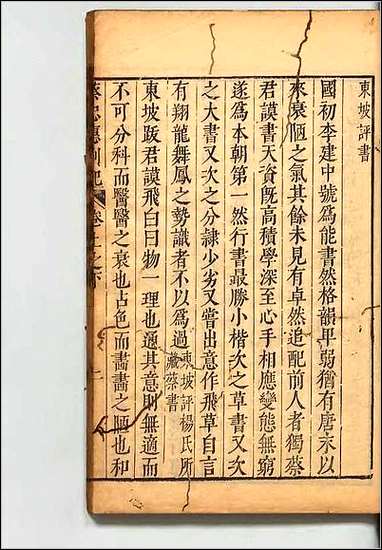 東坡評書
國初李建中號爲能書然格韻卑弱猶有唐末以
來衰陋之氣其餘未見有卓然追配前人者獨蔡
君謨書天資旣高積學深至心手相應變態無窮
遂爲本朝第一然行書最勝小楷次之草書又次
之大書又次之分隷少劣又嘗出意作飛草自言
有翔龍舞鳳之勢識者不以爲過東坡評楊氏所藏蔡書
東坡跋君謨飛白曰物一理也通其意則無適而
不可分科而醫醫之衰也占色而畵畵之陋也和
蔡忠惠別紀 卷上之下